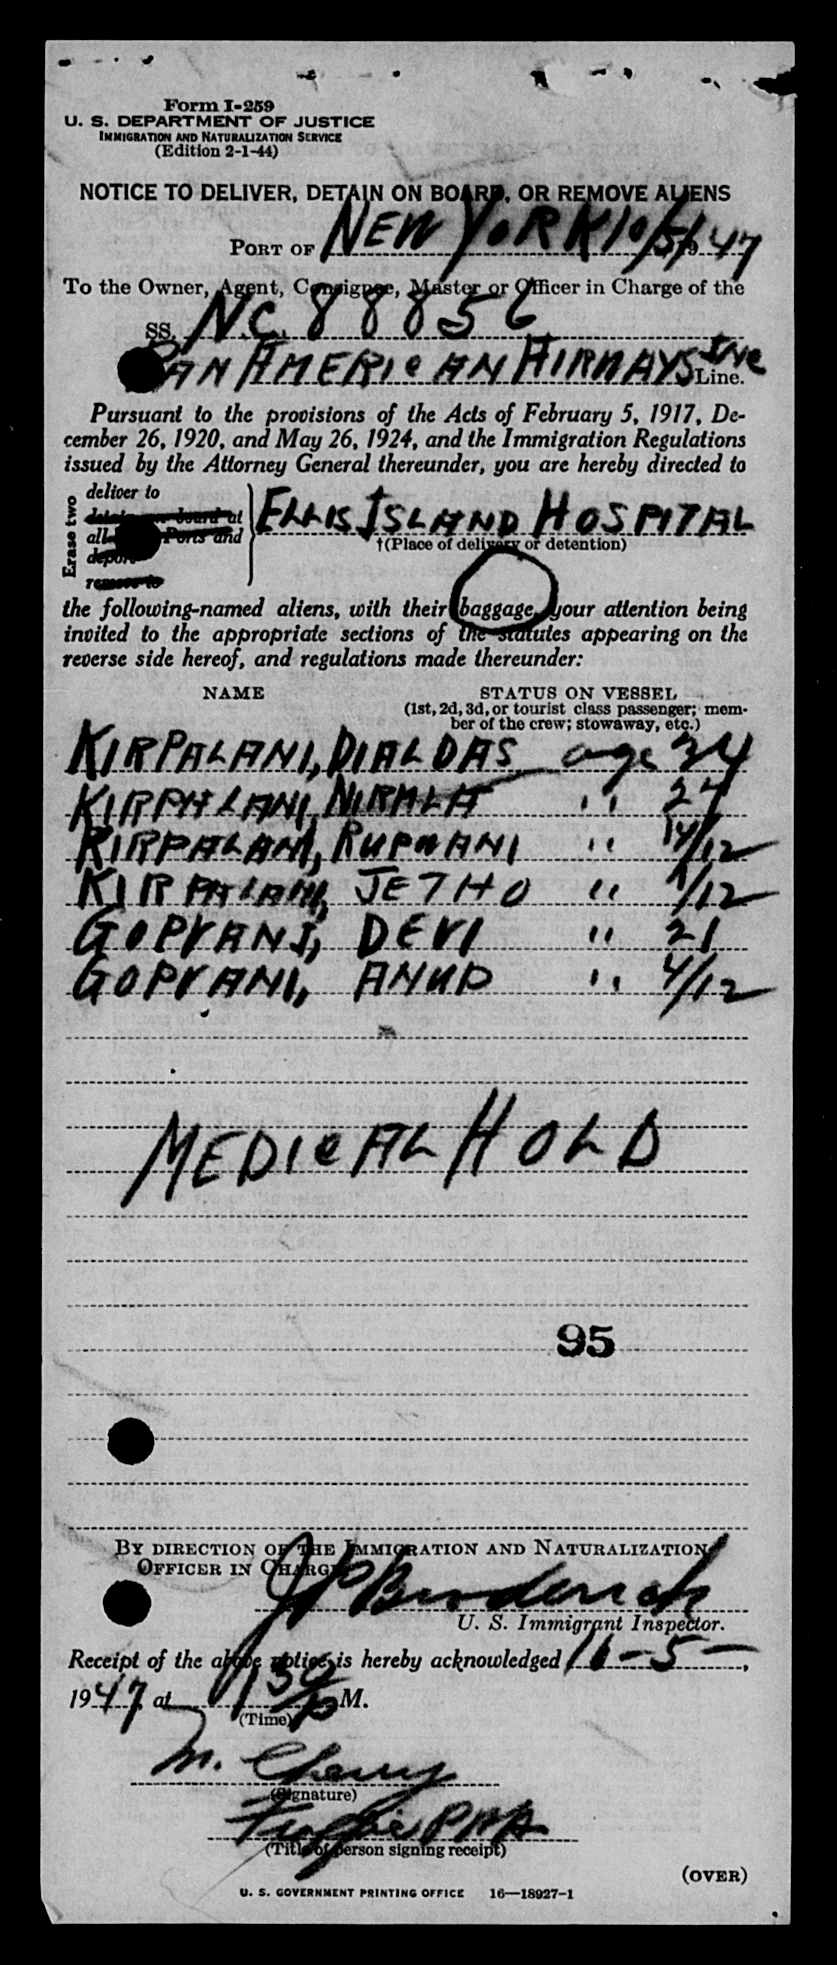 Form I-259
U. S. DEPARTMENT OF JUSTICE
IMMIGRATION AND NATURALIZATION SERVICE
(Edition 2-1-44)
NOTICE TO DELIVER, DETAIN ON BOARD, OR REMOVE ALIENS
PORT OF NEW YORK 10/5/19 47
To the Owner, Agent, Consignee, Master or Officer in Charge of the
SS. N.C. 88856
PAN AMERICAN AIRWAYS Inc Line.
Pursuant to the provisions of the Acts of February 5, 1917, De-
cember 26, 1920, and May 26, 1924, and the Immigration Regulations
issued by the Attorney General thereunder, you are hereby directed to
Erase two
deliver to
detain on board at
all Ports and
deport
remove to
ELLIS ISLAND HOSPITAL
†(Place of delivery or detention)
the following-named aliens, with their baggage, your attention being
invited to the appropriate sections of the statutes appearing on the
reverse side hereof, and regulations made thereunder:
NAME STATUS ON VESSEL
(1st, 2d, 3d, or tourist class passenger; mem-
ber of the crew; stowaway, etc.)
KIRPALANI, DIALDAS age 34
KIRPALANI, NIRMLA " 27
KIRPALANI, " /12
KIRPALANI, JETHO " /12
GOPVANI, DEVI " 21
GOPVANI, ANUP " 4/12
MEDICAL HOLD
95
BY DIRECTION OF THE IMMIGRATION AND NATURALIZATION
OFFICER IN CHARGE
J P Broderick
U. S. Immigrant Inspector.
Receipt of the above notice is hereby acknowledged 10-5-,
1947 at 130 P M.
(Time)
M. Cherry
(Signature)
PAA
(Title of person signing receipt)
(OVER)
U. S. GOVERNMENT PRINTING OFFICE 16—18927-1